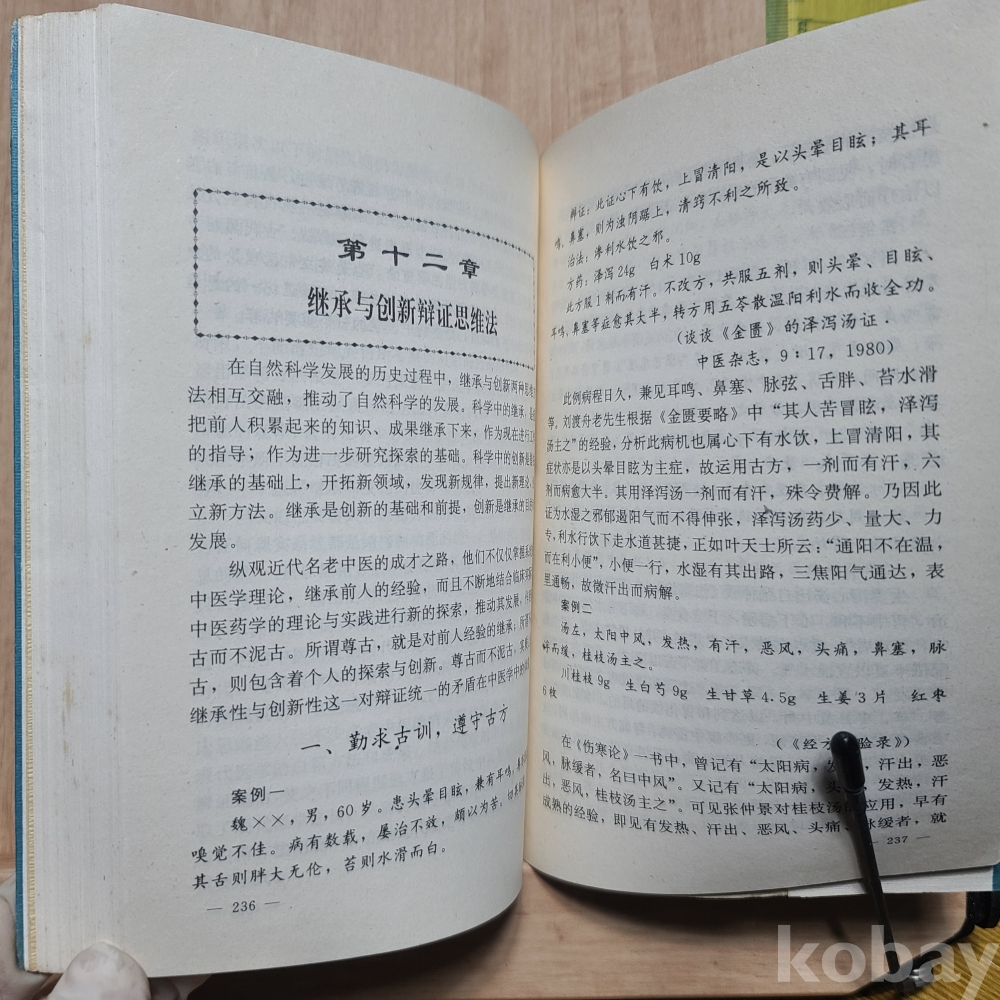 第十二章
继承与创新辩证思维法
在自然科学发展的历史过程中，继承与创新两种思维
法相互交融，推动了自然科学的发展。科学中的继承，是
把前人积累起来的知识、成果继承下来，作为现在进行
的指导；作为进一步研究探索的基础。科学中的创新是
继承的基础上，开拓新领域，发现新规律，提出新理论，
立新方法。继承是创新的基础和前提，创新是继承的目的
发展。
纵观近代名老中医的成才之路，他们不仅仅掌握
中医学理论，继承前人的经验，而且不断地结合临床实
中医药学的理论与实践进行新的探索，推动其发展，
古而不泥古。所谓尊古，就是对前人经验的继承；所谓
古，则包含着个人的探索与创新。尊古而不泥古，
继承性与创新性这一对辩证统一的矛盾在中医学中的
一、勤求古训，遵守古方
案例一
魏××，男，60岁。患头晕目眩，兼有耳鸣，鼻
嗅觉不佳。病有数载，屡治不效，颇以为苦。切其
其舌则胖大无伦，苔则水滑而白。
— 236 —
辨证：此证心下有饮，上冒清阳，是以头晕目眩；其耳
鸣、鼻塞，则为浊阴踞上，清窍不利之所致。
治法：渗利水饮之邪。
方药：泽泻24g 白术10g
此方服1剂而有汗。不改方，共服五剂，则头晕、目眩、
耳鸣、鼻塞等症愈其大半，转方用五苓散温阳利水而收全功。
（谈谈《金匮》的泽泻汤证．
中医杂志，9：17，1980）
此例病程日久，兼见耳鸣、鼻塞、脉弦、舌胖、苔水滑
等，刘渡舟老先生根据《金匮要略》中“其人苦冒眩，泽泻
汤主之”的经验，分析此病机也属心下有水饮，上冒清阳，其
症状亦是以头晕目眩为主症，故运用古方，一剂而有汗，六
剂而病愈大半。其用泽泻汤一剂而有汗，殊令费解。乃因此
证为水湿之邪郁遏阳气而不得伸张，泽泻汤药少、量大、力
专，利水行饮下走水道甚捷，正如叶天士所云：“通阳不在温，
而在利小便”，小便一行，水湿有其出路，三焦阳气通达，表
里通畅，故微汗出而病解。
案例二
汤左，太阳中风，发热，有汗，恶风，头痛，鼻塞，脉
浮而缓，桂枝汤主之。
川桂枝9g 生白芍9g 生甘草4.5g 生姜3片 红枣
6枚
（《经方 验录》）
在《伤寒论》一书中，曾记有“太阳病，发 ，汗出，恶
风，脉缓者，名曰中风”。又记有“太阳病，头 ，发热，汗
出，恶风，桂枝汤主之”。可见张仲景对桂枝汤的应用，早有
成熟的经验，即见有发热、汗出、恶风、头痛、脉缓者，就
— 237 —
kobay